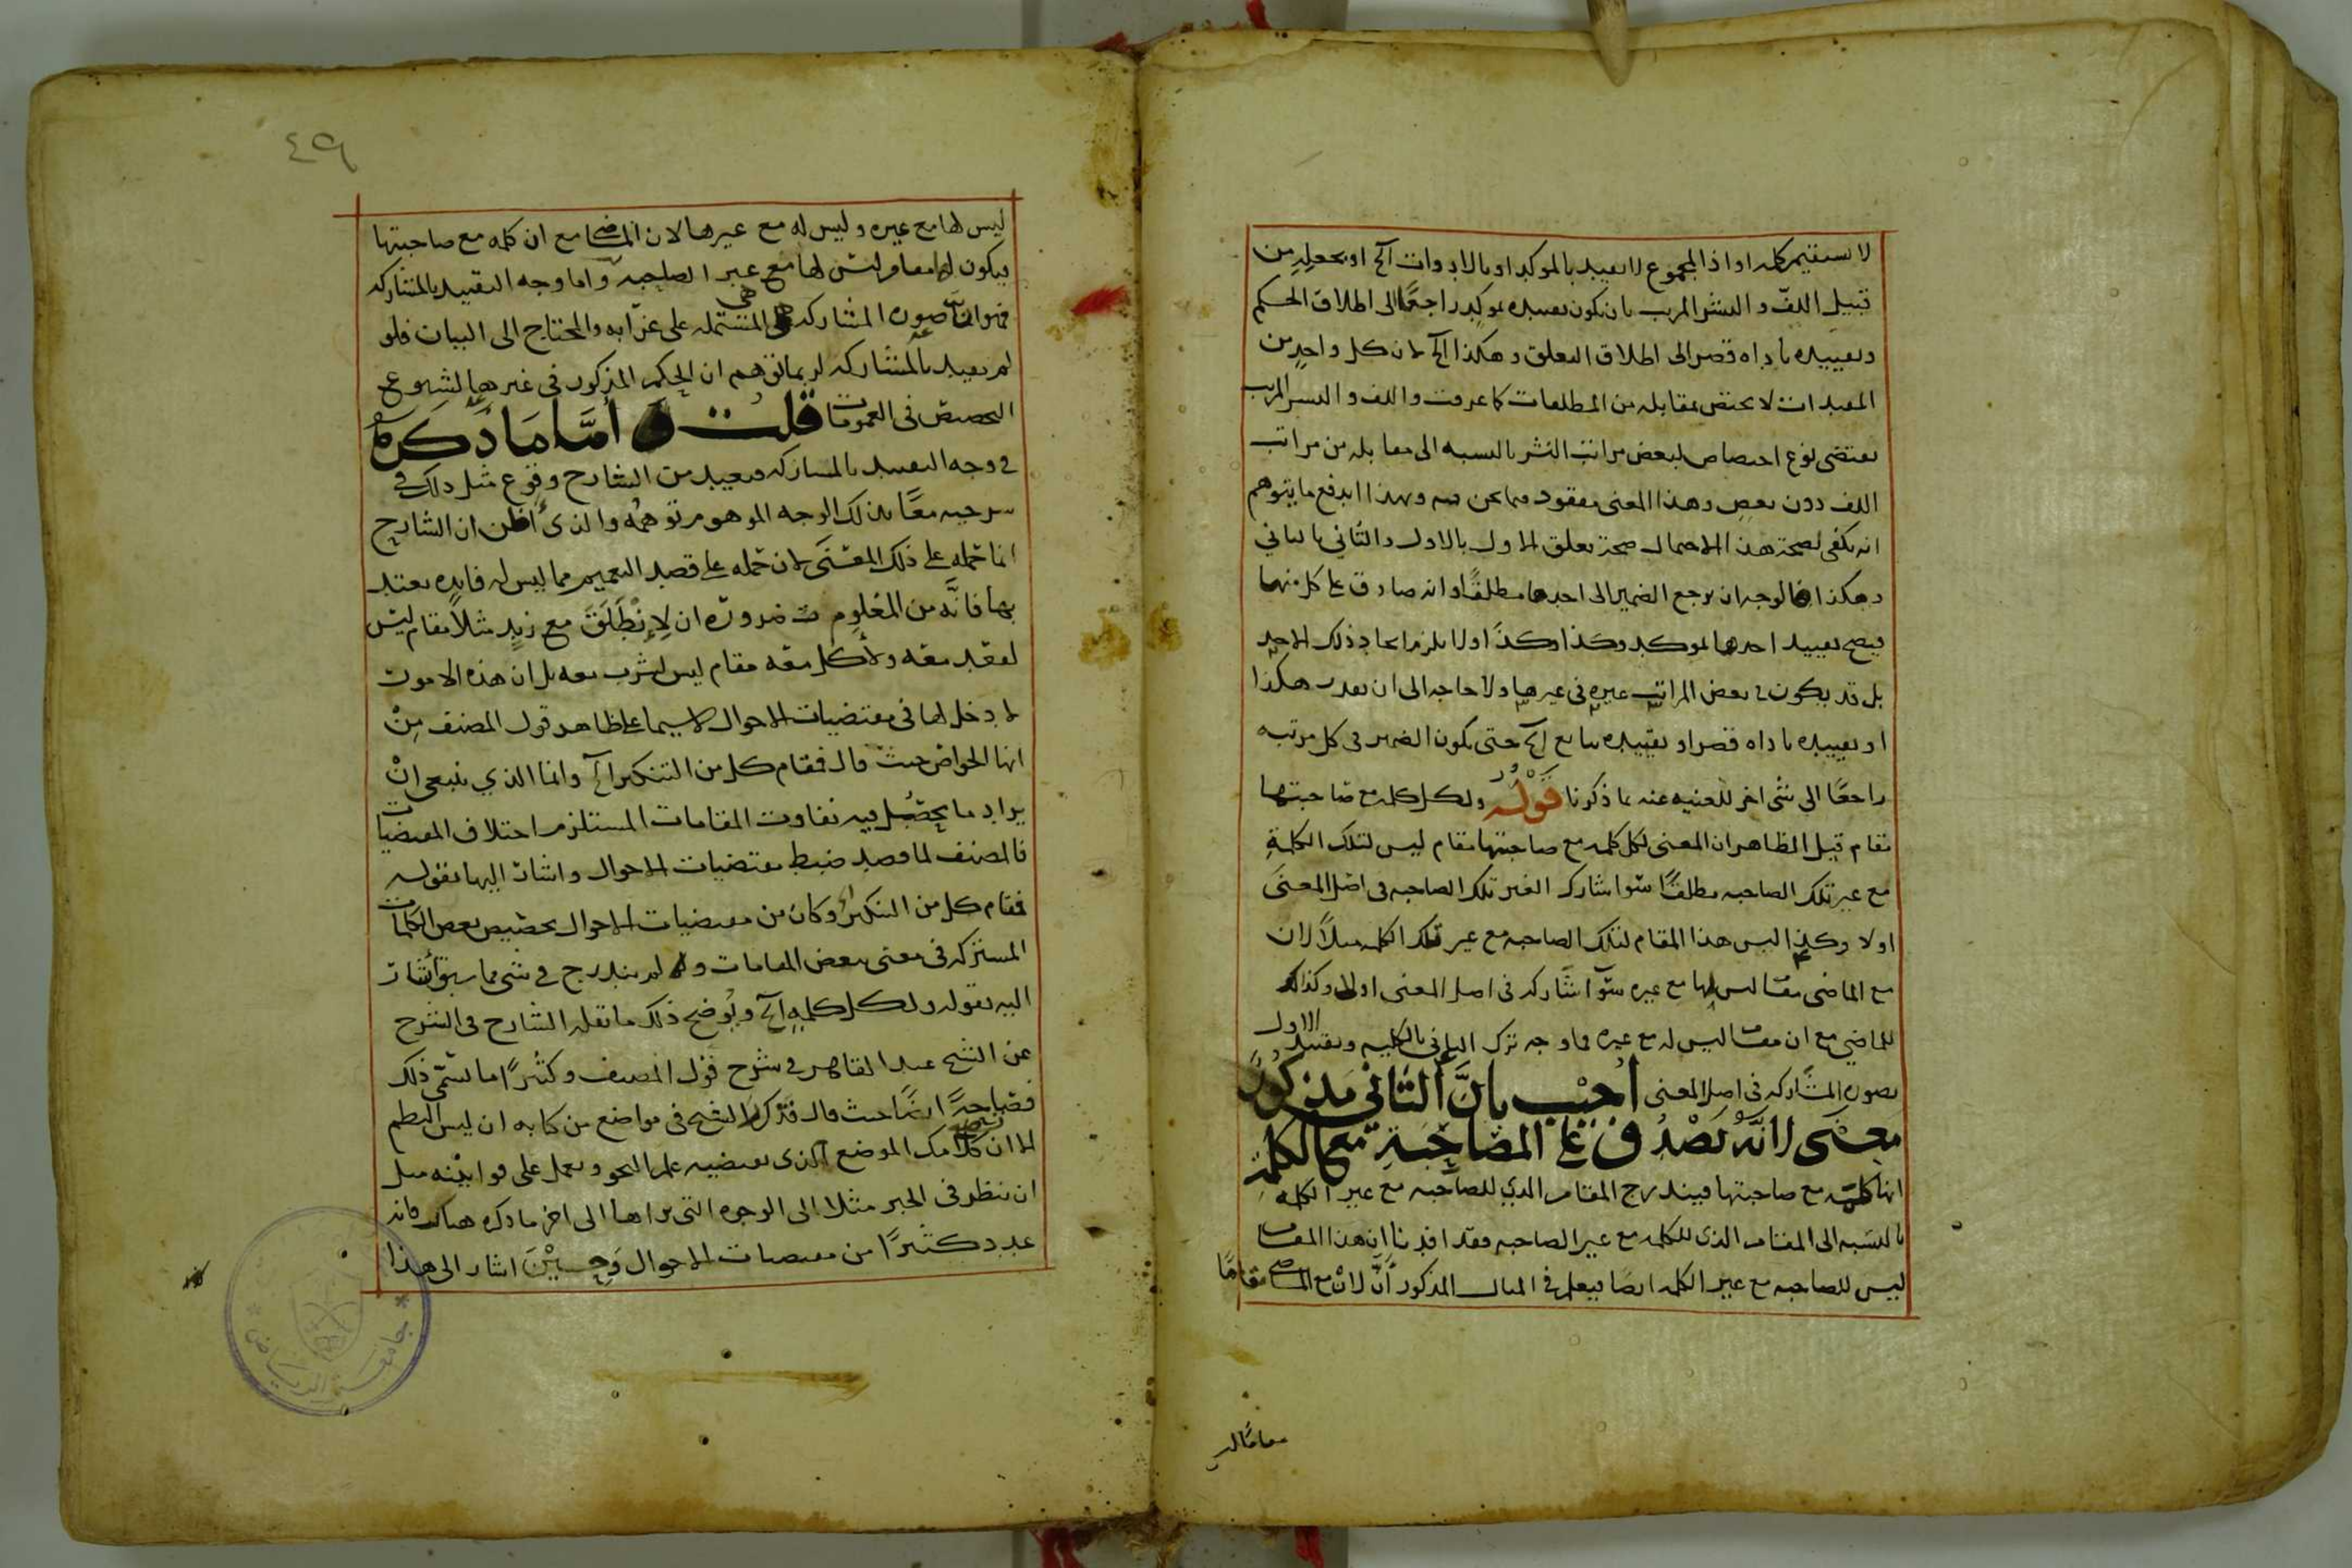 لا يستقيم كله او اذ المجموع لا يقيد بالموكد او بالادوات الخ او بجعله من
قبيل اللف و النشر المرتب بان يكون تقييده بموكد راجعًا الى اطلاق الحكم
وتقييده باداه قصر الى اطلاق التعلق وهكذا الخ لان كل واحدٍ من
المقيدات لا يختص بمقابله من المطلقات كما عرفت واللف و النشر المرتب
يقتضى نوع اختصاص لبعض مراتب النشر بالنسبه الى مقابله من مراتب
اللف دون بعض وهذا المعنى مفقود فيما نحن فيه وبهذا اندفع ما يتوهم
انه يكفى لصحة هذا الاحتمال صحة تعلق الاول بالاول والثانى بالثانى
وهكذا فالوجه ان يرجع الضمير الى احدها مطلقًا وانه صادق على كل منها
فيصح تقييد احدها بموكد وكذا وكذا ولا يلزم اتحاد ذلك الاحد
بل قد يكون فى بعض المراتب غيره فى غيرها ولا حاجه الى ان يقدر هكذا
او تقييده باداه قصر او تقييده بتابع الخ حتى يكون الضمير فى كل مرتبه
راجعًا الى شئ اخر للغنيه عنه بما ذكرنا قَوْلُه ولكل كلمه مع صاحبتها
مقام قيل الظاهر ان المعنى لكل كلمه مع صاحبتها مقام ليس لتلك الكلمةِ
مع غير تلك الصاحبه مطلقًا سوا شارك الغير تلك الصاحبه فى اصل المعنىَ
اولا وكذا ليس هذا المقام لتلك الصاحبه مع غير تلك الكلمه مثلاً لان
مع الماضى مقاما ليس لها مع غيره سوآ شاركه فى اصل المعنى اولا وكذلك
للماضي مع ان مقاما ليس له مع غيره فما وجه ترك الثانى بالكليه وتقييد الاول
بصورة المشاركه فى اصل المعنى اُجِيْب بِانَّ الثَاني مَذكُورٌ
مَعنىً لانَّهُ يَصْدُق على المصَاحَبَةِ مع الكلمَةِ
انها كلمه مع صاحبتها فيندرج المقام الذي للصاحبه مع غير الكلمه
بالنسبه الى المقام الذى للكلمه مع غير الصاحبه فقد افدنا ان هذا المقام
ليس للصاحبه مع غير الكلمه ايضًا فيعلم فى المثال المذكور انَّ لانْ مع الماضى مقامًا
مقامًا ليس
٤٩
ليس لها مع غيره وليس له مع غيرها لان الماضى مع ان كلمه مع صاحبتها
فيكون لها مقام ليس لها مع غير الصاحبه واما وجه التقييد بالمشاركه
فهو ان صوره المشاركه هى المشتمله على غرابه والمحتاج الى البيان فلو
لم يقيد بالمشاركه لربما توهم ان الحكم المذكور فى غيرها لشيوع
التخصيص فى العمومات قلت و امَّا مَا ذَكرَهُ
فى وجه التقييد بالمشاركه فبعيد من الشارح وقوع مثل ذلك فى
شرحيه معًا بذلك الوجه الموهوم توهمُه والذىُ اظن ان الشارح
انما حمله على ذلك المعنَى لان حمله على قصد التعميم مما ليس له فايده يعتد
بها فانَّه من المعْلوم ضرورةً ان لِانطَلَقَ مع زيدٍ مثلاً مقام ليس
لقعد معه ولأكل معه مقام ليس لشرب معه بل ان هذه الامور
لا دخل لها فى مقتضيات الاحوال لاسيما على ظاهر قول المصنف مِنْ
انها الخواص حيث قال فمقام كل من التنكير الخ وانما الذي ينبغى انْ
يراد ما يحصُل فيه تفاوت المقامات المستلزم اختلاف المقتضيات
فالمصنف لما قصد ضبط مقتضيات الاحوال واشار اليها بقوله
فمقام كل من التنكير الخ وكان من مقتضيات الاحوال تخصيص بعض الكلمات
المشتركه فى معنى ببعض المقامات ولم يندرج فى شى مما سبق أشار
اليه بقوله ولكل كلمهٍ الخ ويُوضح ذلك ما نقله الشارح فى الشرح
عن الشيخ عبد القاهر فى شرح قول المصنف وكثيرًا ما يسمّى ذلك
فصاحةً ايضًا حيث قال فذكر الشيخ فى مواضع من كتابه ان ليس النظم
الا ان تضع كلامك الموضع الذى يقتضيه علم النحو وتعمل على قوانينه مثل
ان تنظر فى الخبر مثلا الى الوجوه التى تراها الى اخر ما ذكره هناك فانه
عدد كثيرًا من مقتضيات الاحوال وَحِينئِذٍ اشار الى هذا
جامعة الرياض